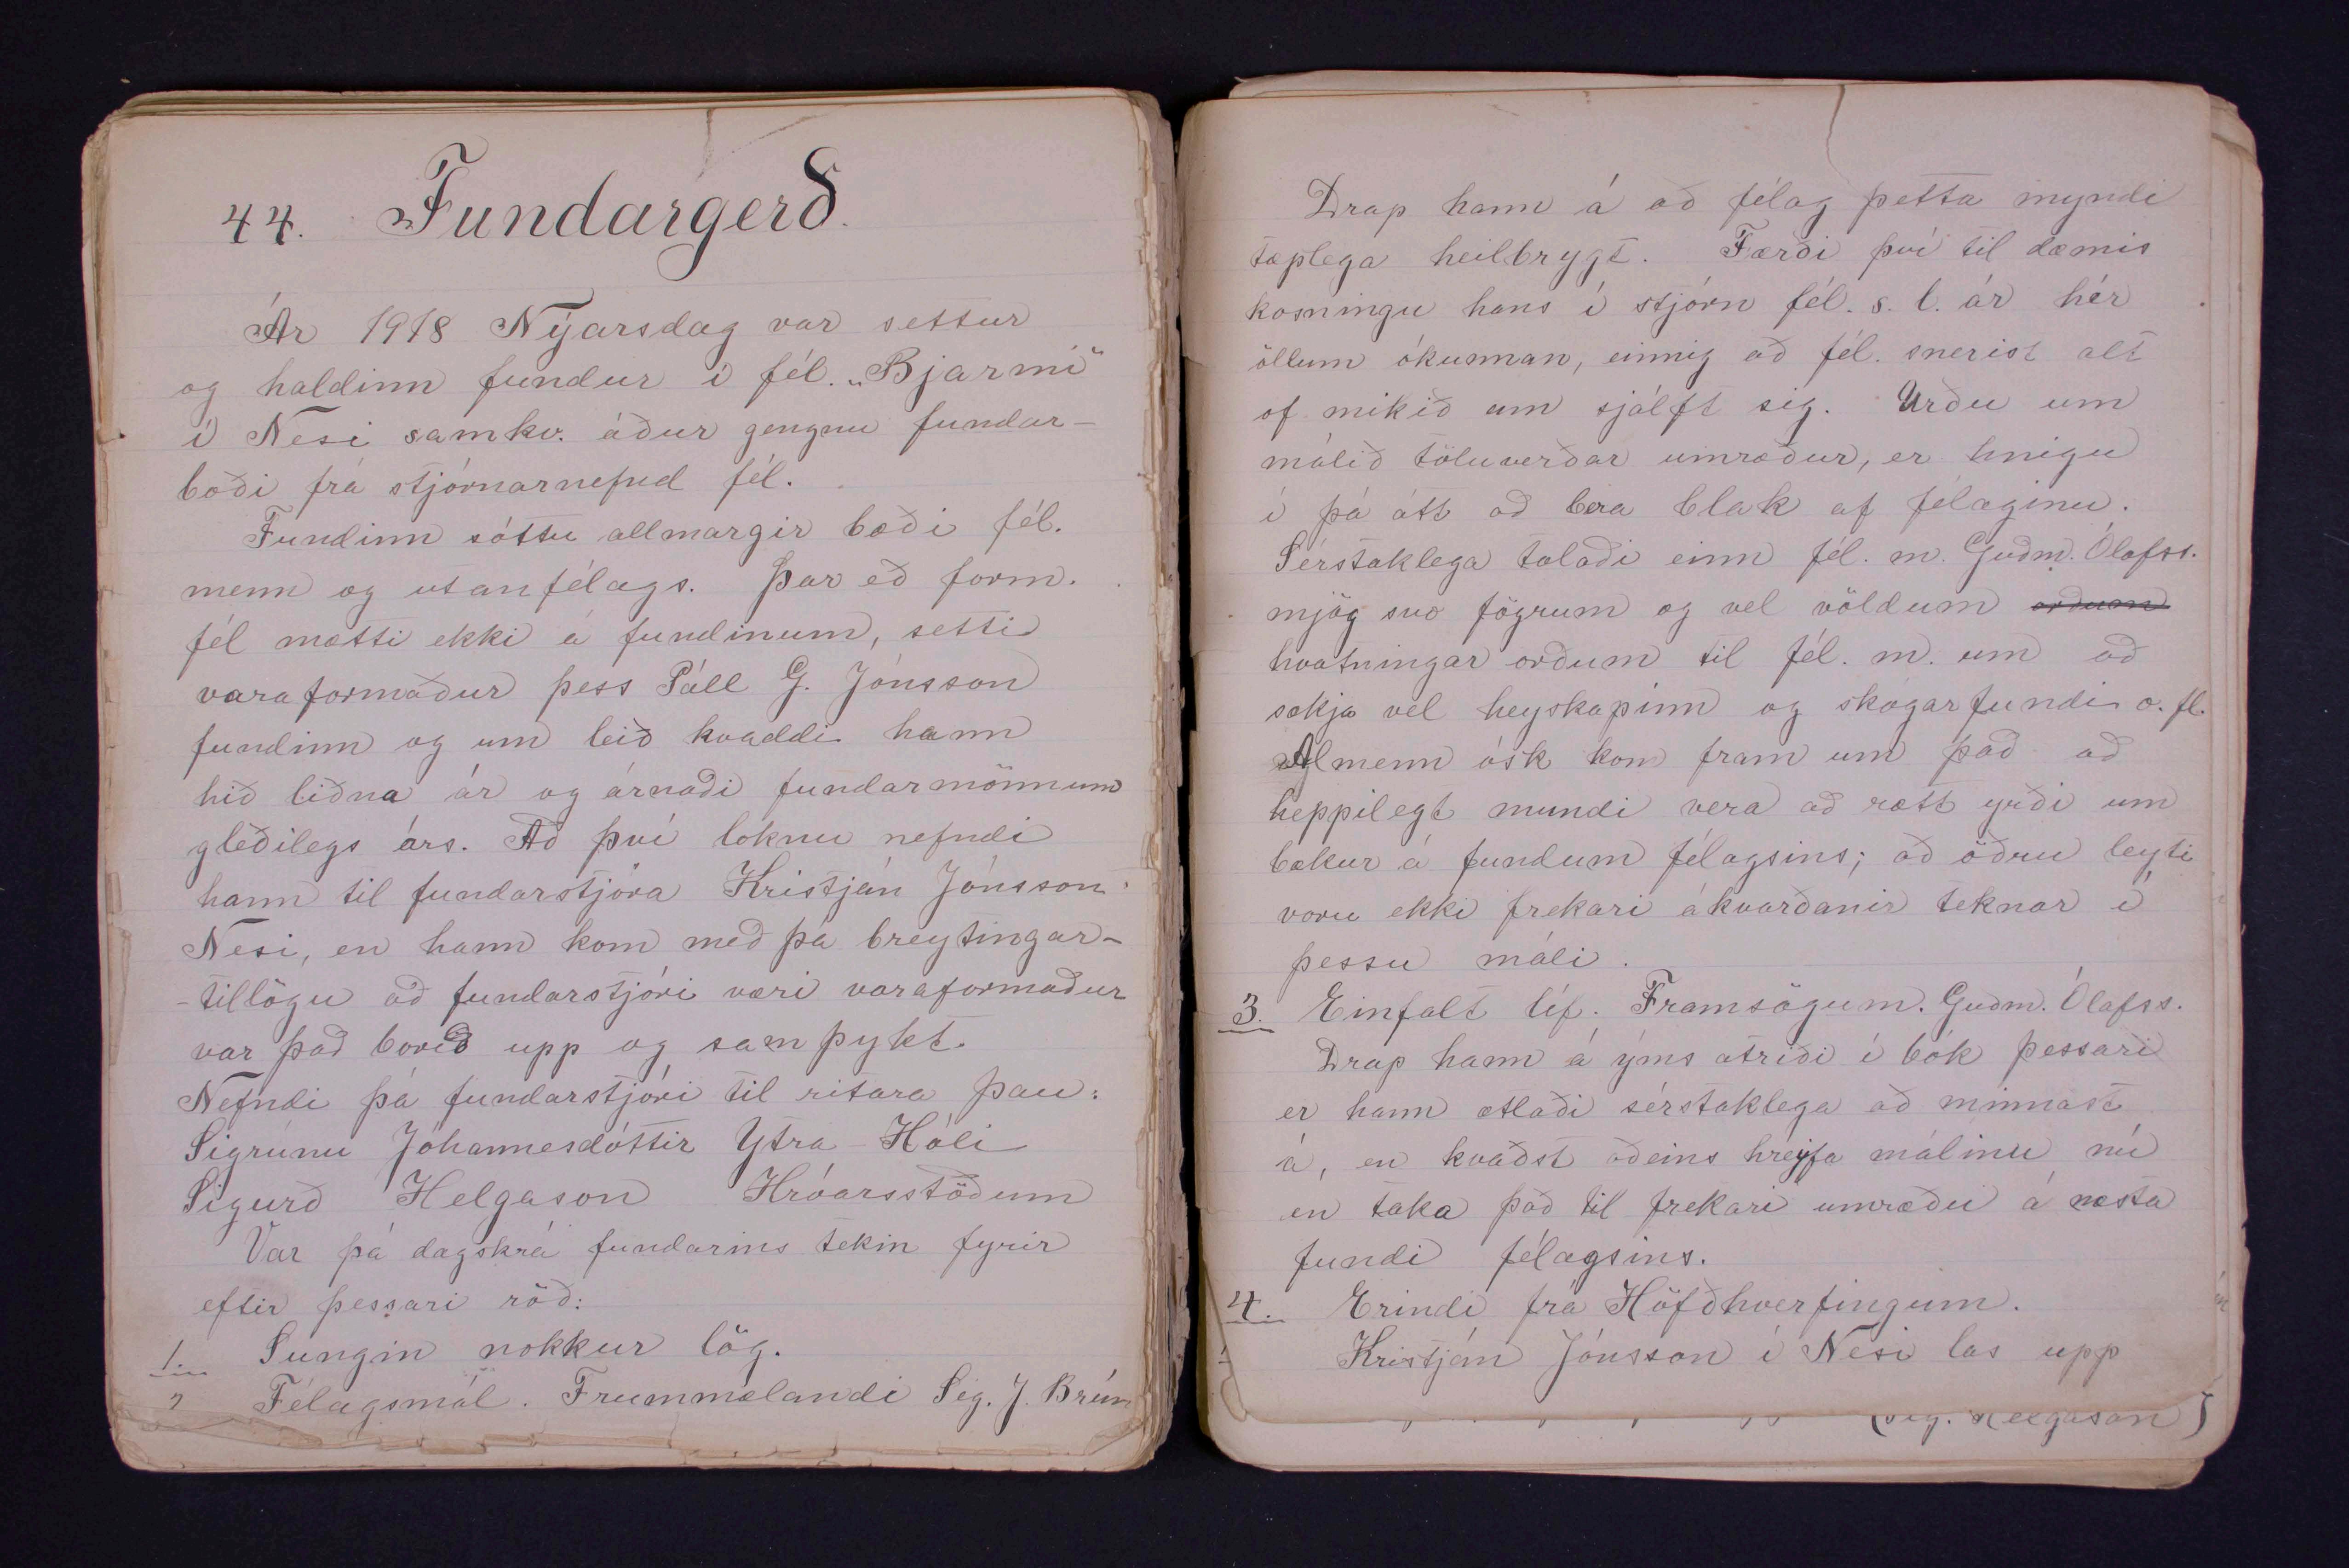 44. Fundargerð.
Ár 1918 Nýarsdag var settur
og haldinn fundur í fél. „Bjarmi“
í Nesi samkv. áður gengnu fundar-
boði frá stjórnarnefnd fél.
Fundinn sóttu allmargir bæði fél.
menn og utanfélags. Þar eð form.
fél mætti ekki á fundinum, setti
varaformaður þess Páll G. Jónsson
fundinn og um leið kvaddi hann
hið liðna ár og árnaði fundarmönnum
gleðilegs árs. Að því loknu nefndi
hann til fundarstjóra Kristján Jónsson
Nesi, en hann kom með þá breytingar-
-tillögu að fundarstjóri væri varaformaður
var það borið upp og samþykt.
Nefndi þá fundarstjóri til ritara þau:
Sigrúnu Jóhannesdóttir Ytra-Hóli
Sigurð Helgason Hróarsstöðum
Var þá dagskrá fundarins tekin fyrir
eftir þessari röð:
1. Sungin nokkur lög.
2 Félagsmál. Frummælandi Sig. J. Brún
Drap hann á að félag þetta myndi
tæplega heilbrygt. Færði því til dæmis
kosningu hans í stjórn fél. s. l. ár hér
öllum ókunnan, einnig að fél. snerist alt
of mikið um sjálft sig. Urðu um
málið töluverðar umræður, er hnigu
í þá átt að bera blak af félaginu.
Sérstaklega talaði einn fél. m. Guðm. Ólafss.
mjög svo fögrum og vel völdum orðum
hvatningar orðum til fél. m. um að
sækja vel heyskapinn og skógarfundi o. fl.
Almenn ósk kom fram um það að
heppilegt mundi vera að rætt yrði um
bækur á fundum félagsins; að öðru leyti
voru ekki frekari ákvarðanir teknar í
þessu máli.
3. Einfalt líf. Framsögum. Guðm. Ólafss.
Drap hann á ýms atriði í bók þessari
er hann ætlaði sérstaklega að minnast
á, en kvaðst aðeins hreyfa málinu nú
en taka það til frekari umræðu á næsta
fundi félagsins.
4. Erindi frá Höfðhverfingum.
Kristján Jónsson í Nesi las upp
(Sig. Helgason)